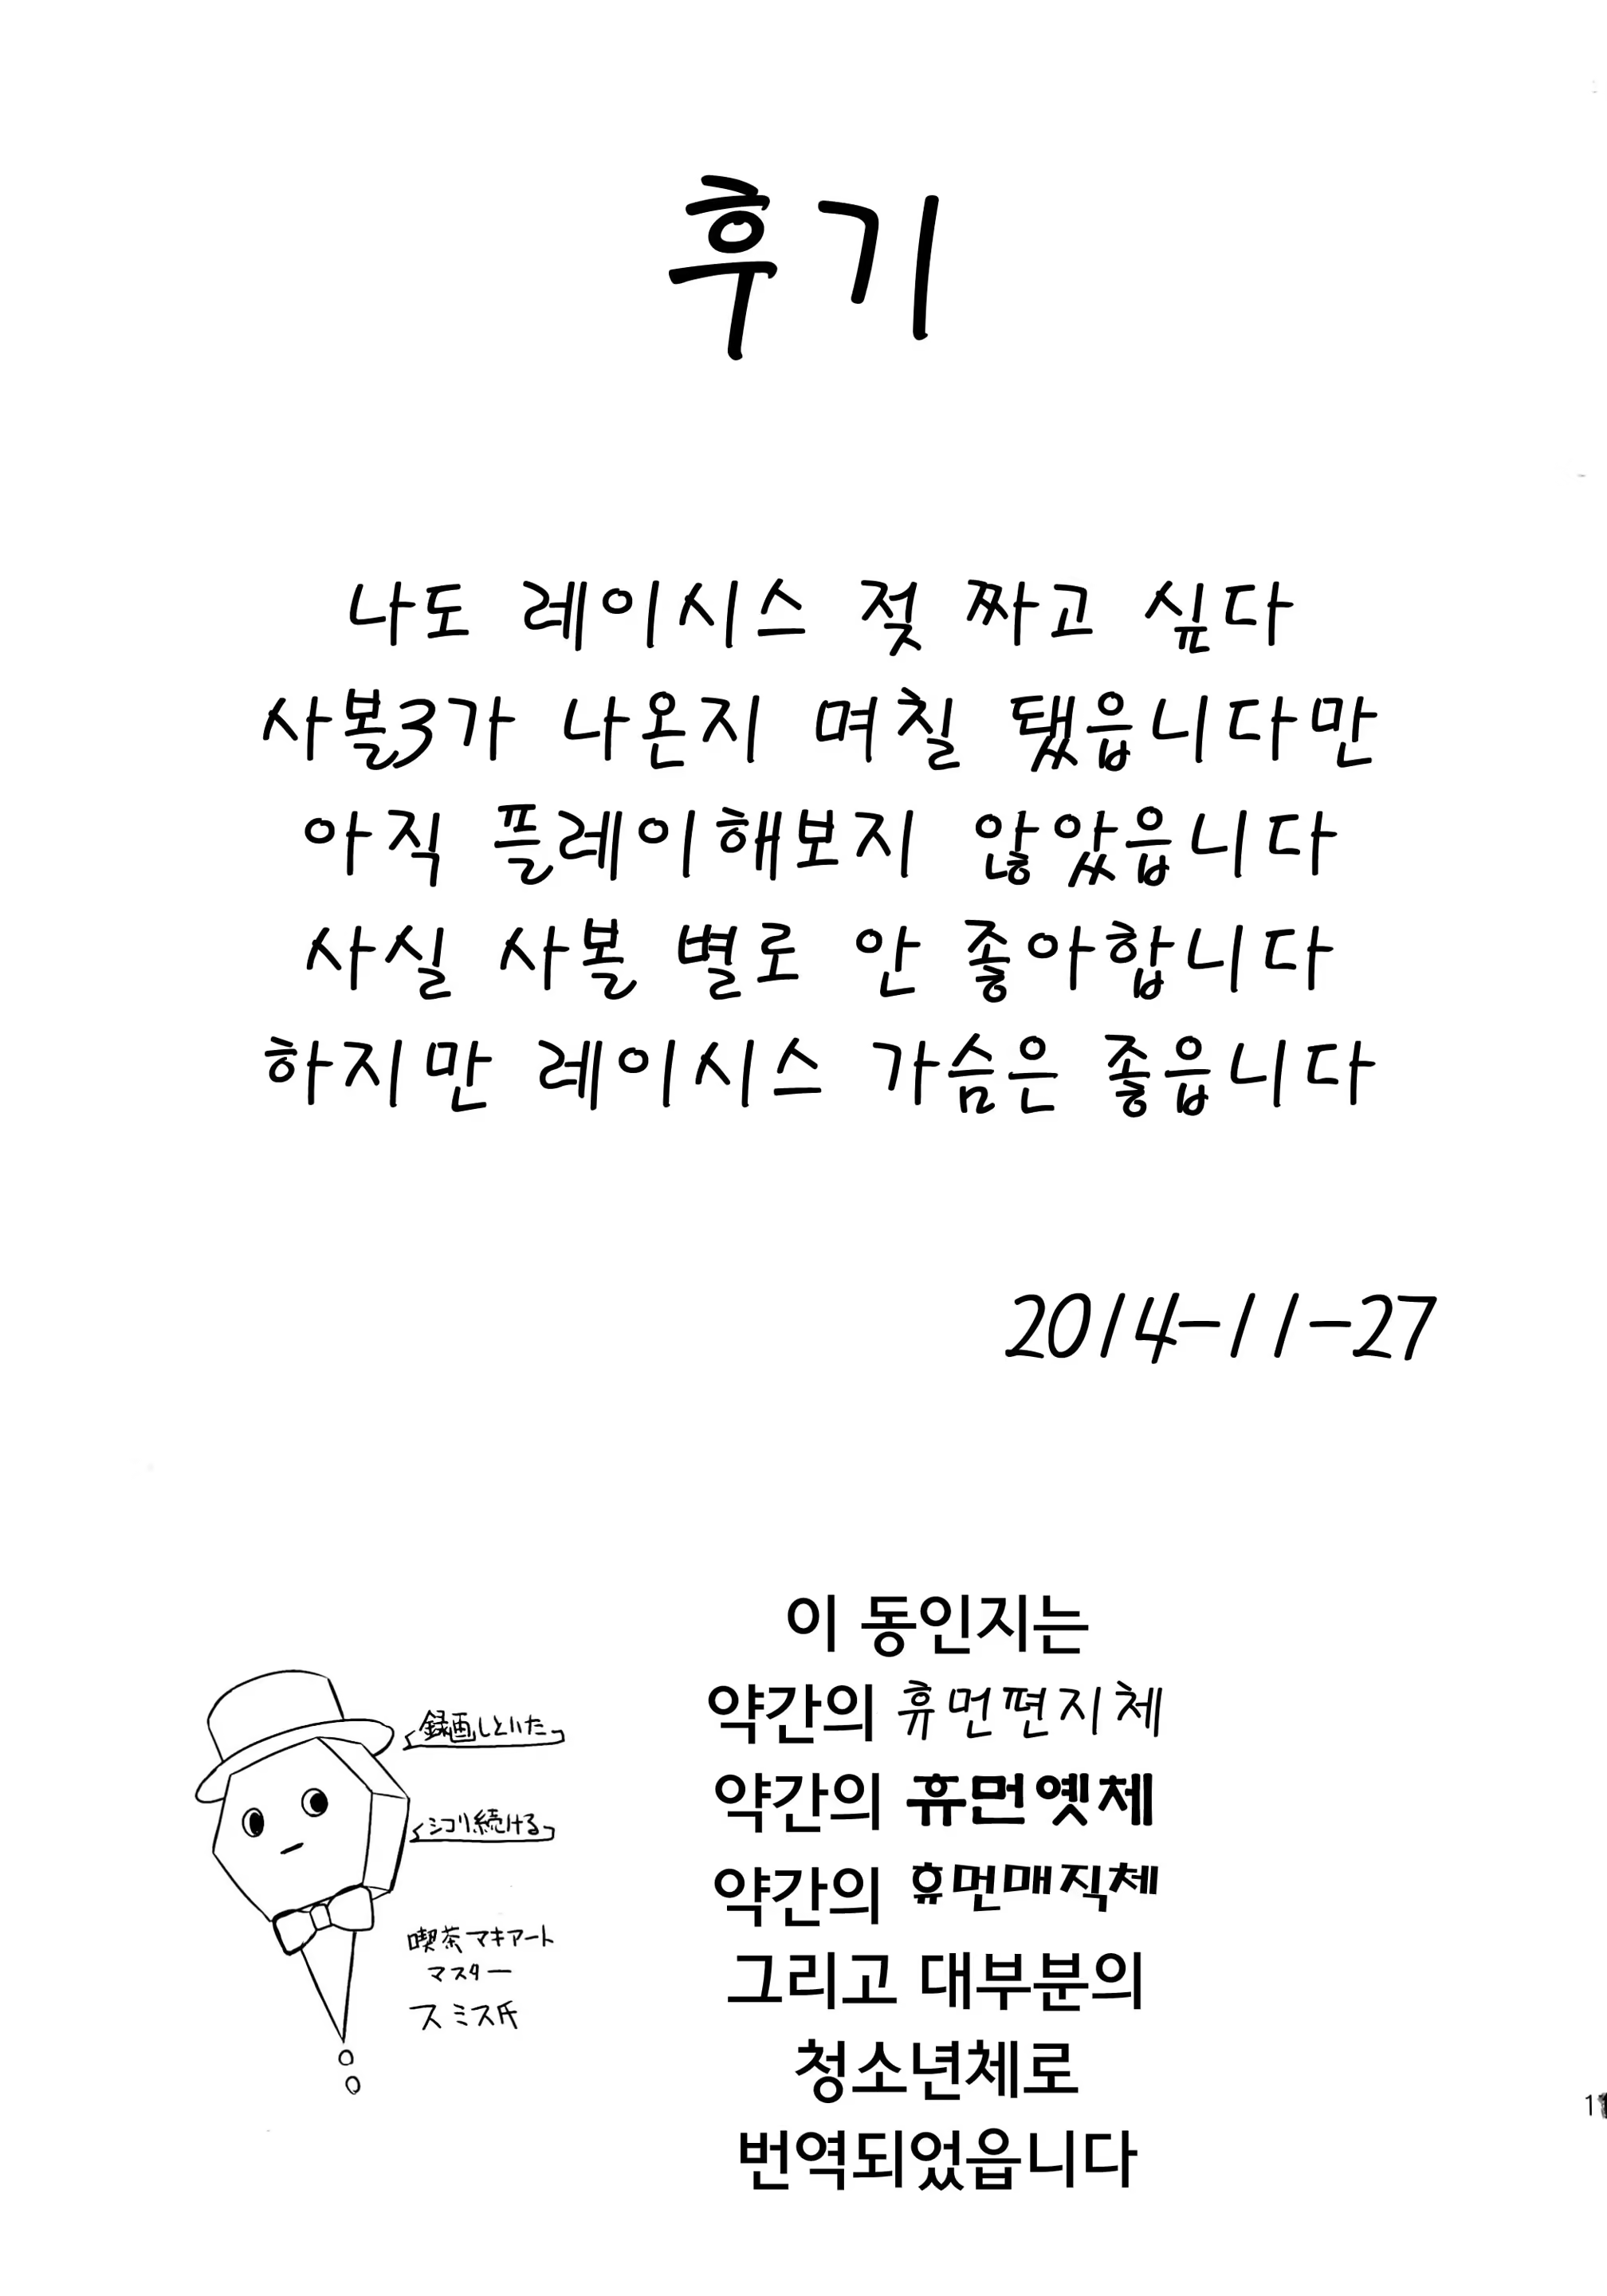 후기
나도 레이시스 젖 짜고 싶다
사볼3가 나온지 며칠 됐읍니다만
아직 플레이해보지 않았읍니다
사실 사볼 별로 안 좋아합니다
하지만 레이시스 가슴은 좋읍니다
2014-11-27
録画しといた
シコリ続ける
喫茶マキアート
マスター
スミス氏
이 동인지는
약간의 휴먼편지체
약간의 휴먼옛체
약간의 휴먼매직체
그리고 대부분의
청소년체로
번역되었읍니다